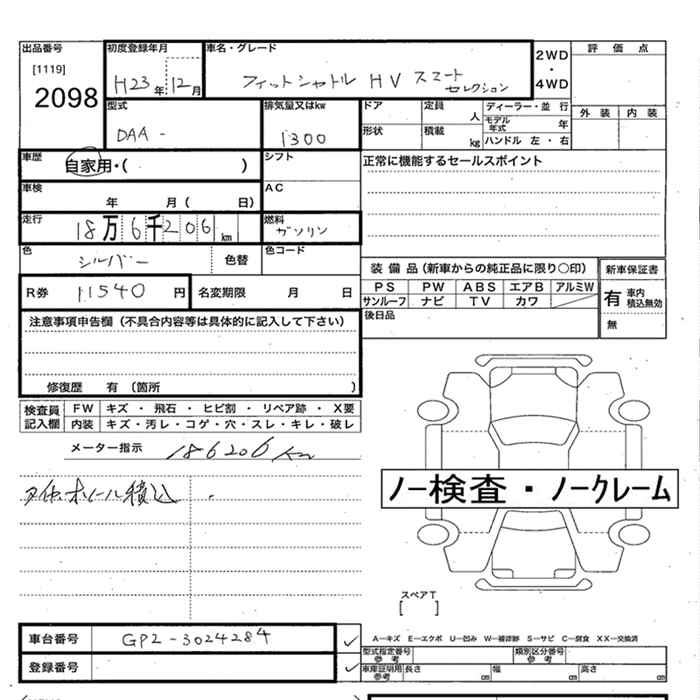 出品番号 初度登録年月 車名・グレード 2WD・4WD 評価点
[1119]
2098 H23年12月 フィットシャトル HV スマートセレクション
型式 排気量又はkw ドア 定員 人 ディーラー・並行 外装 内装
DAA- 1300 モデル年式 年
形状 積載 kg ハンドル 左・右
車歴 自家用・( ) シフト 正常に機能するセールスポイント
車検 年 月( 日) AC
走行 18万6千206km 燃料 ガソリン
色 シルバー 色替 色コード
装備品(新車からの純正品に限り○印) 新車保証書
R券 11540円 名変期限 月 日 PS PW ABS エアB アルミW 有 車内積込無効
サンルーフ ナビ TV カワ
注意事項申告欄(不具合内容等は具体的に記入して下さい) 後日品 無
修復歴 有(箇所 )
検査員記入欄 FW キズ・飛石・ヒビ割・リペア跡・X要
内装 キズ・汚レ・コゲ・穴・スレ・キレ・破レ
メーター指示 186206 Km
ノー検査・ノークレーム
ホイール積込
スペアT
[ ]
車台番号 GP2-3024284 ✓
A-キズ E-エクボ U-凹み W-補修跡 S-サビ C-腐食 XX-交換済
型式指定番号参考 類別区分番号参考
登録番号 ✓ 車庫証明用参考 長さ cm 幅 cm 高さ cm